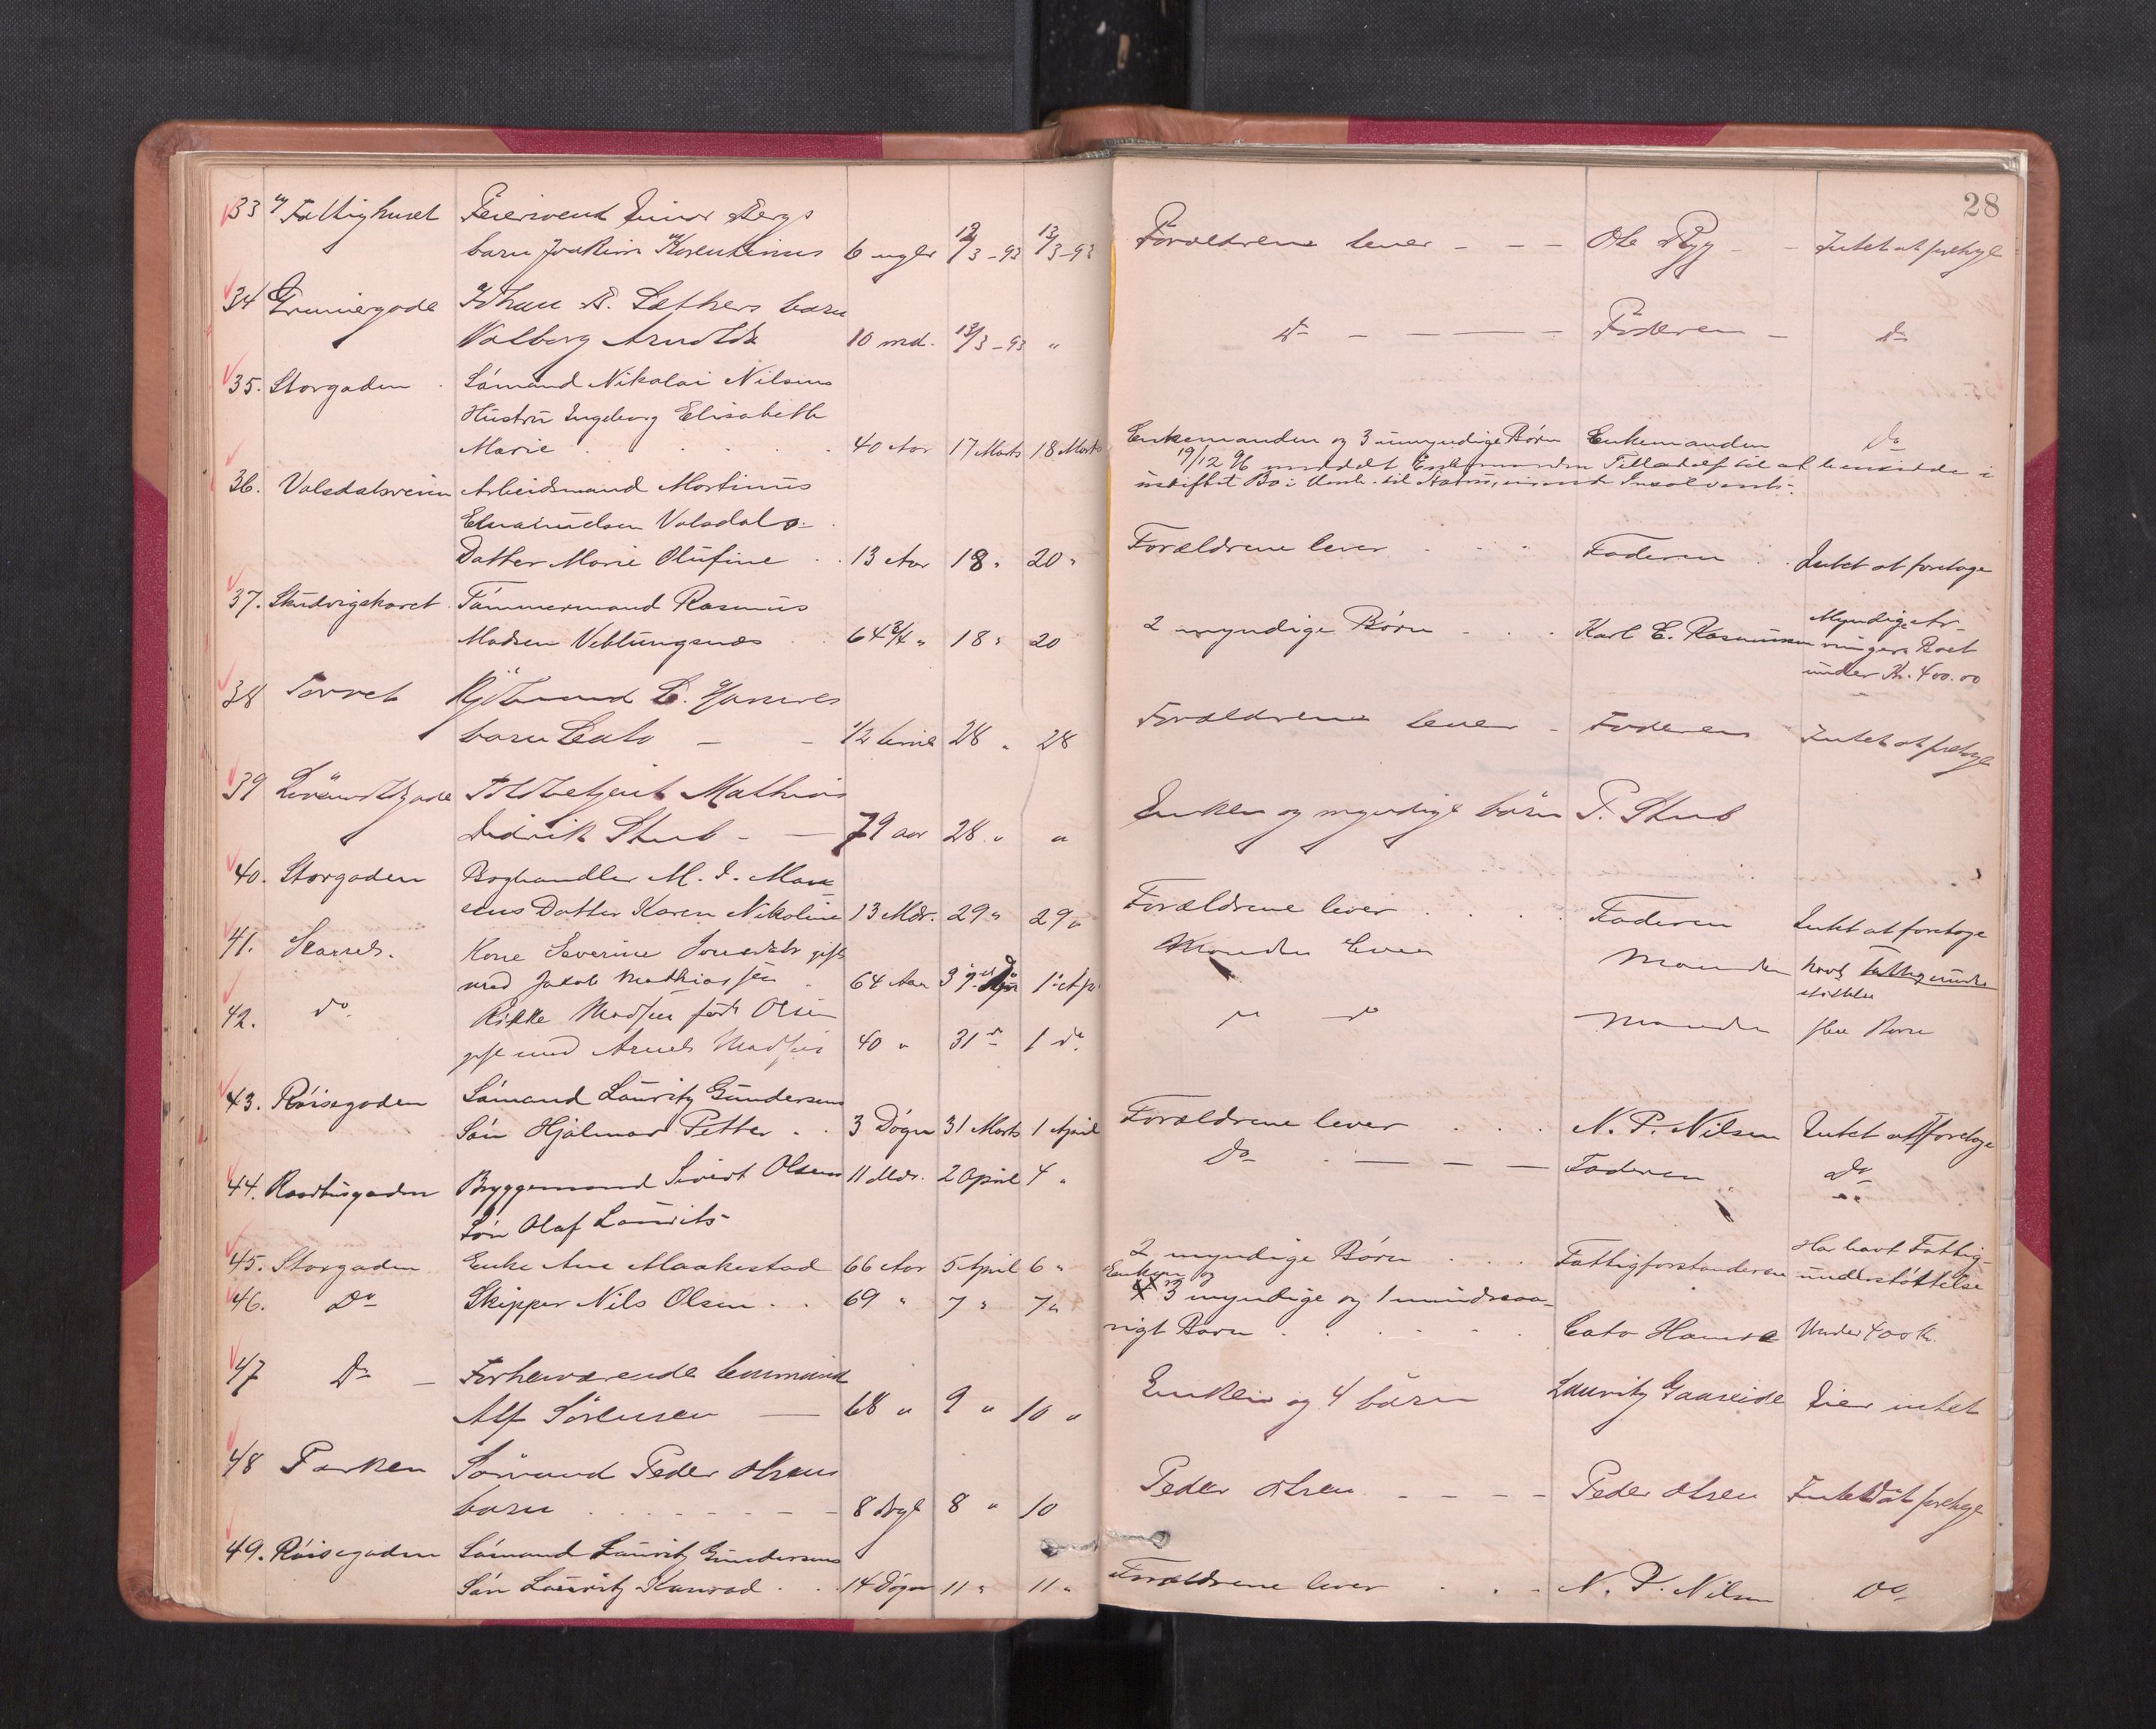 28
33 Fattighuset Feiersvend Einar Bergs
barn Joakim Korentinus 6 uger 12/3-93 13/3-93 Forældrene lever - - - Ole Rygg - - Intet at foretage
34 Johan A. Sæthers barn
Valborg 10 md. 13/3-93 " Do - - - Faderen - do
35. Storgaden Sómand Nikolai Nilsens
Hustru Ingeborg Elisabeth
Marie 40 Aar 17 Marts 18 Marts Enkemanden og 3 umyndige Børn Enkemanden Do
19/12 96 meddelt Enkemanden Tilladelse til at hensidde i
uskiftet Bo i
36. Volsdalsveien Arbeidsmand Martinus
Volsdals
Datter Marie Olufine 13 Aar 18 " 20 " Forældrene lever Faderen Intet at foretage
37. Tømmermand Rasmus
Madsen Veblungsnæs 64 3/4 " 18 " 20 2 myndige Børn Karl E. Rasmussen Myndige Ar-
vinger. Boet
under Kr. 400.00
38 Torvet Kjøbmand L.
barn Cato - - 1/2 time 28 " 28 Forældrene lever - Faderen Intet at foretage
39 Toldbetjent Mathias
Didrik Stub - - 79 aar 28 " " Enken og myndige børn P. Stub
40. Storgaden Boghandler M. I.
Datter Karen Nikoline 13 Mdr. 29 " 29 " Forældrene lever Faderen Intet at foretage
41. Kone Severine gift
med Jakob Mathiassen 64 Aar 1 Apr Manden lever Manden havt
42. do Rikke Madsen født Olsen
gift med Madsen 40 " 31 do 1 do " do Manden Børn
43. Róisegaden Sómand Lauritz Gundersens
Són Hjalmar Petter 3 Døgn 31 Marts 1 April Forældrene lever N. P. Nilsen Intet at foretage
44. Raadhusgaden Bryggemand Sivert Olsens 11 Mdr. 2 April 4 " Do - - - Faderen Do
Són Olaf Laurits
45. Storgaden Enke Ane Maakestad 66 Aar 5 April 6 " 2 myndige Børn Fattigforstanderen Har havt Fattig-
understøttelse
46. Do Skipper Nils Olsen 69 " 7 " 7 " Enken og
3 myndige og 1 mindreaa-
rigt Barn Cato Hamre Under 400 Kr.
47 Do - Forhenværende
Alf Sörensen - 68 " 9 " 10 " Enken og 4 børn Lauritz Gaaseide Eier intet
48 Parken Sømand Peder Olsens
barn 8 8 " 10 Peder Olsen - - - - Peder Olsen Intet at foretage
49. Róisegaden Sómand Lauritz Gundersens
Són Lauritz Konrad 14 Døgn 11 " 11 " Forældrene lever N. P. Nilsen Do